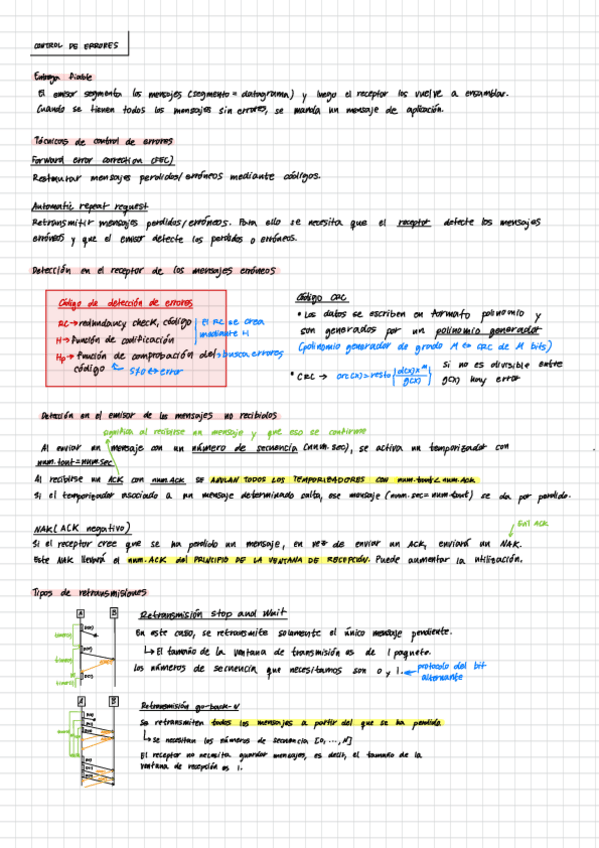 CONTROL DE ERRORES
Entrega fiable
El emisor segmenta los mensajes (segmento = datagrama) y luego el receptor los vuelve a ensamblar.
Cuando se tienen todos los mensajes sin errores, se manda un mensaje de aplicación.
Técnicas de control de errores
Forward error correction (FEC)
Restaurar mensajes perdidos/erróneos mediante códigos.
Automatic repeat request
Retransmitir mensajes perdidos/erróneos. Para ello se necesita que el receptor detecte los mensajes
erróneos y que el emisor detecte los perdidos o erróneos.
Detección en el receptor de los mensajes erróneos
Código de detección de errores
RC → redundancy check, código
El RC se crea
mediante H
H → Función de codificación
Hp → función de comprobación del
código
→ busca errores
si ≠ 0 ⇔ error
Código CRC
• Los datos se escriben en formato polinomio y
son generados por un polinomio generador
(polinomio generador de grado M ⇔ CRC de M bits)
• CRC → crc(x) = resto
g(x)
Si no es divisible entre
g(x) hay error
Detección en el emisor de los mensajes no recibidos
significa al recibirse un mensaje y que eso se confirme
Al enviar un mensaje con un número de secuencia (num.sec), se activa un temporizador con
num.tout = num.sec
Al recibirse un ACK con num.ACK se ANULAN TODOS LOS TEMPORIZADORES CON num.tout < num.ACK
Si el temporizador asociado a un mensaje determinado salta, ese mensaje (num.sec = num.tout) se da por perdido.
NAK (ACK negativo)
Sin ACK
Si el receptor cree que se ha perdido un mensaje, en vez de enviar un ACK, enviará un NAK.
Este NAK llevará el num.ACK del PRINCIPIO DE LA VENTANA DE RECEPCIÓN. Puede aumentar la utilización.
Tipos de retransmisiones
A B
Retransmisión stop and wait
En este caso, se retransmite solamente el único mensaje pendiente.
↳ El tamaño de la ventana de transmisión es de 1 paquete.
Los números de secuencia que necesitamos son 0 y 1.
← protocolo del bit
alternante
A B
Retransmisión go-back-N
Se retransmiten todos los mensajes a partir del que se ha perdido
↳ se necesitan los números de secuencia [0, ..., N]
El receptor no necesita guardar mensajes, es decir, el tamaño de la
ventana de recepción es 1.